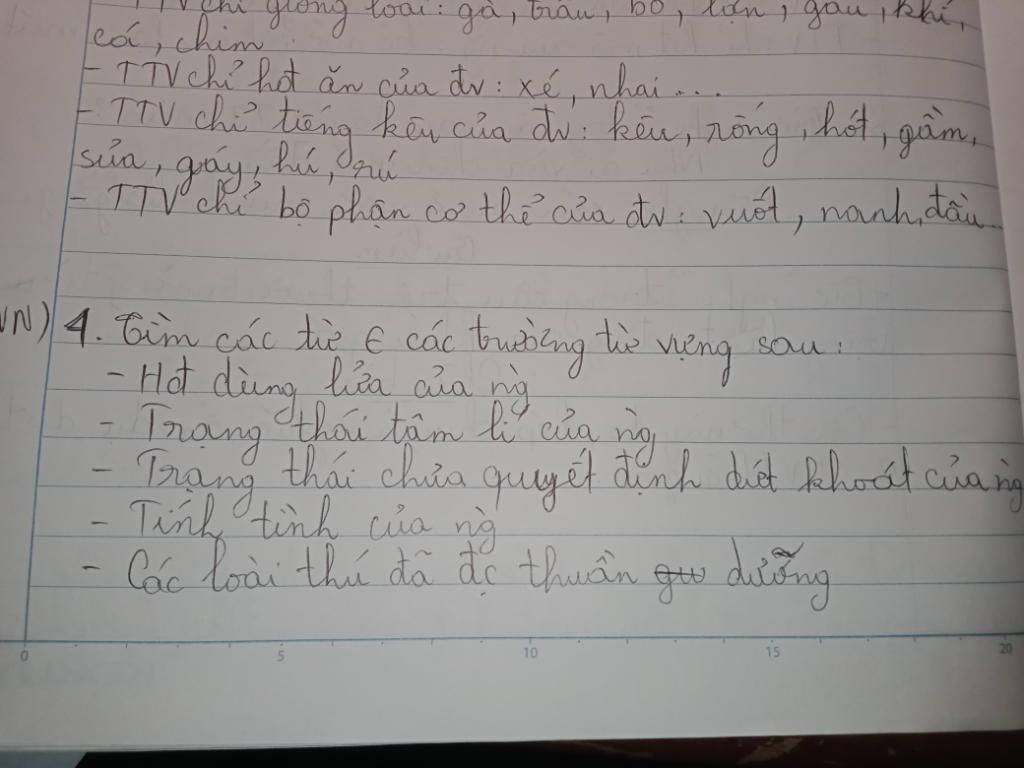 TTV chỉ giống loài: gà, trâu, bò, lợn, gấu, khỉ,
cá, chim
- TTV chỉ hđt ăn của đv: xé, nhai...
- TTV chỉ tiếng kêu của đv: kêu, rống, hót, gầm,
sủa, gáy, hí, rú
- TTV chỉ bộ phận cơ thể của đv: vuốt, nanh, đầu...
VN) 4. Tìm các từ ∈ các trường từ vựng sau:
- Hđt dùng lửa của ng
- Trạng thái tâm lí của ng
- Trạng thái chưa quyết định dứt khoát của ng
- Tính tình của ng
- Các loài thú đã đc thuần dưỡng
0 5 10 15 20